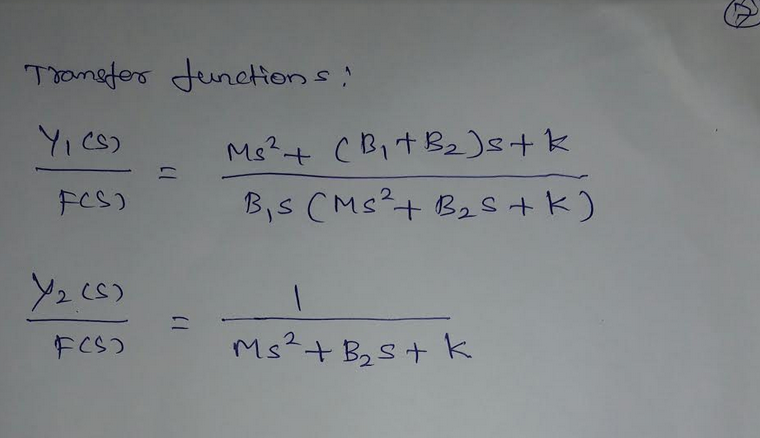 Transfer functions:
Y₁(s)/F(s) = Ms² + (B₁+B₂)s + K / B₁s (Ms² + B₂s + K)
Y₂(s)/F(s) = 1 / Ms² + B₂s + K